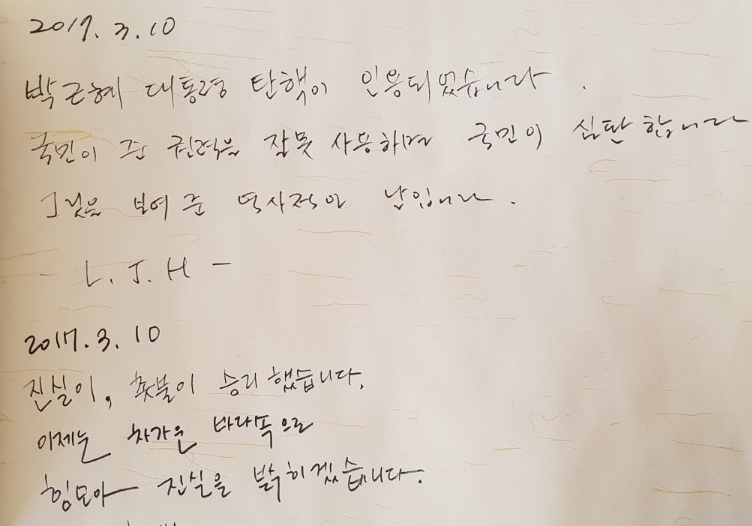 2017. 3. 10
박근혜 대통령 탄핵이 인용되었습니다.
국민이 준 권력을 잘못 사용하면 국민이 심판합니다
그것을 보여 준 역사적인 날입니다.
- L. J. H -
2017. 3. 10
진실이, 촛불이 승리했습니다.
이제는 차가운 바다속으로
힘모아 진실을 밝히겠습니다.